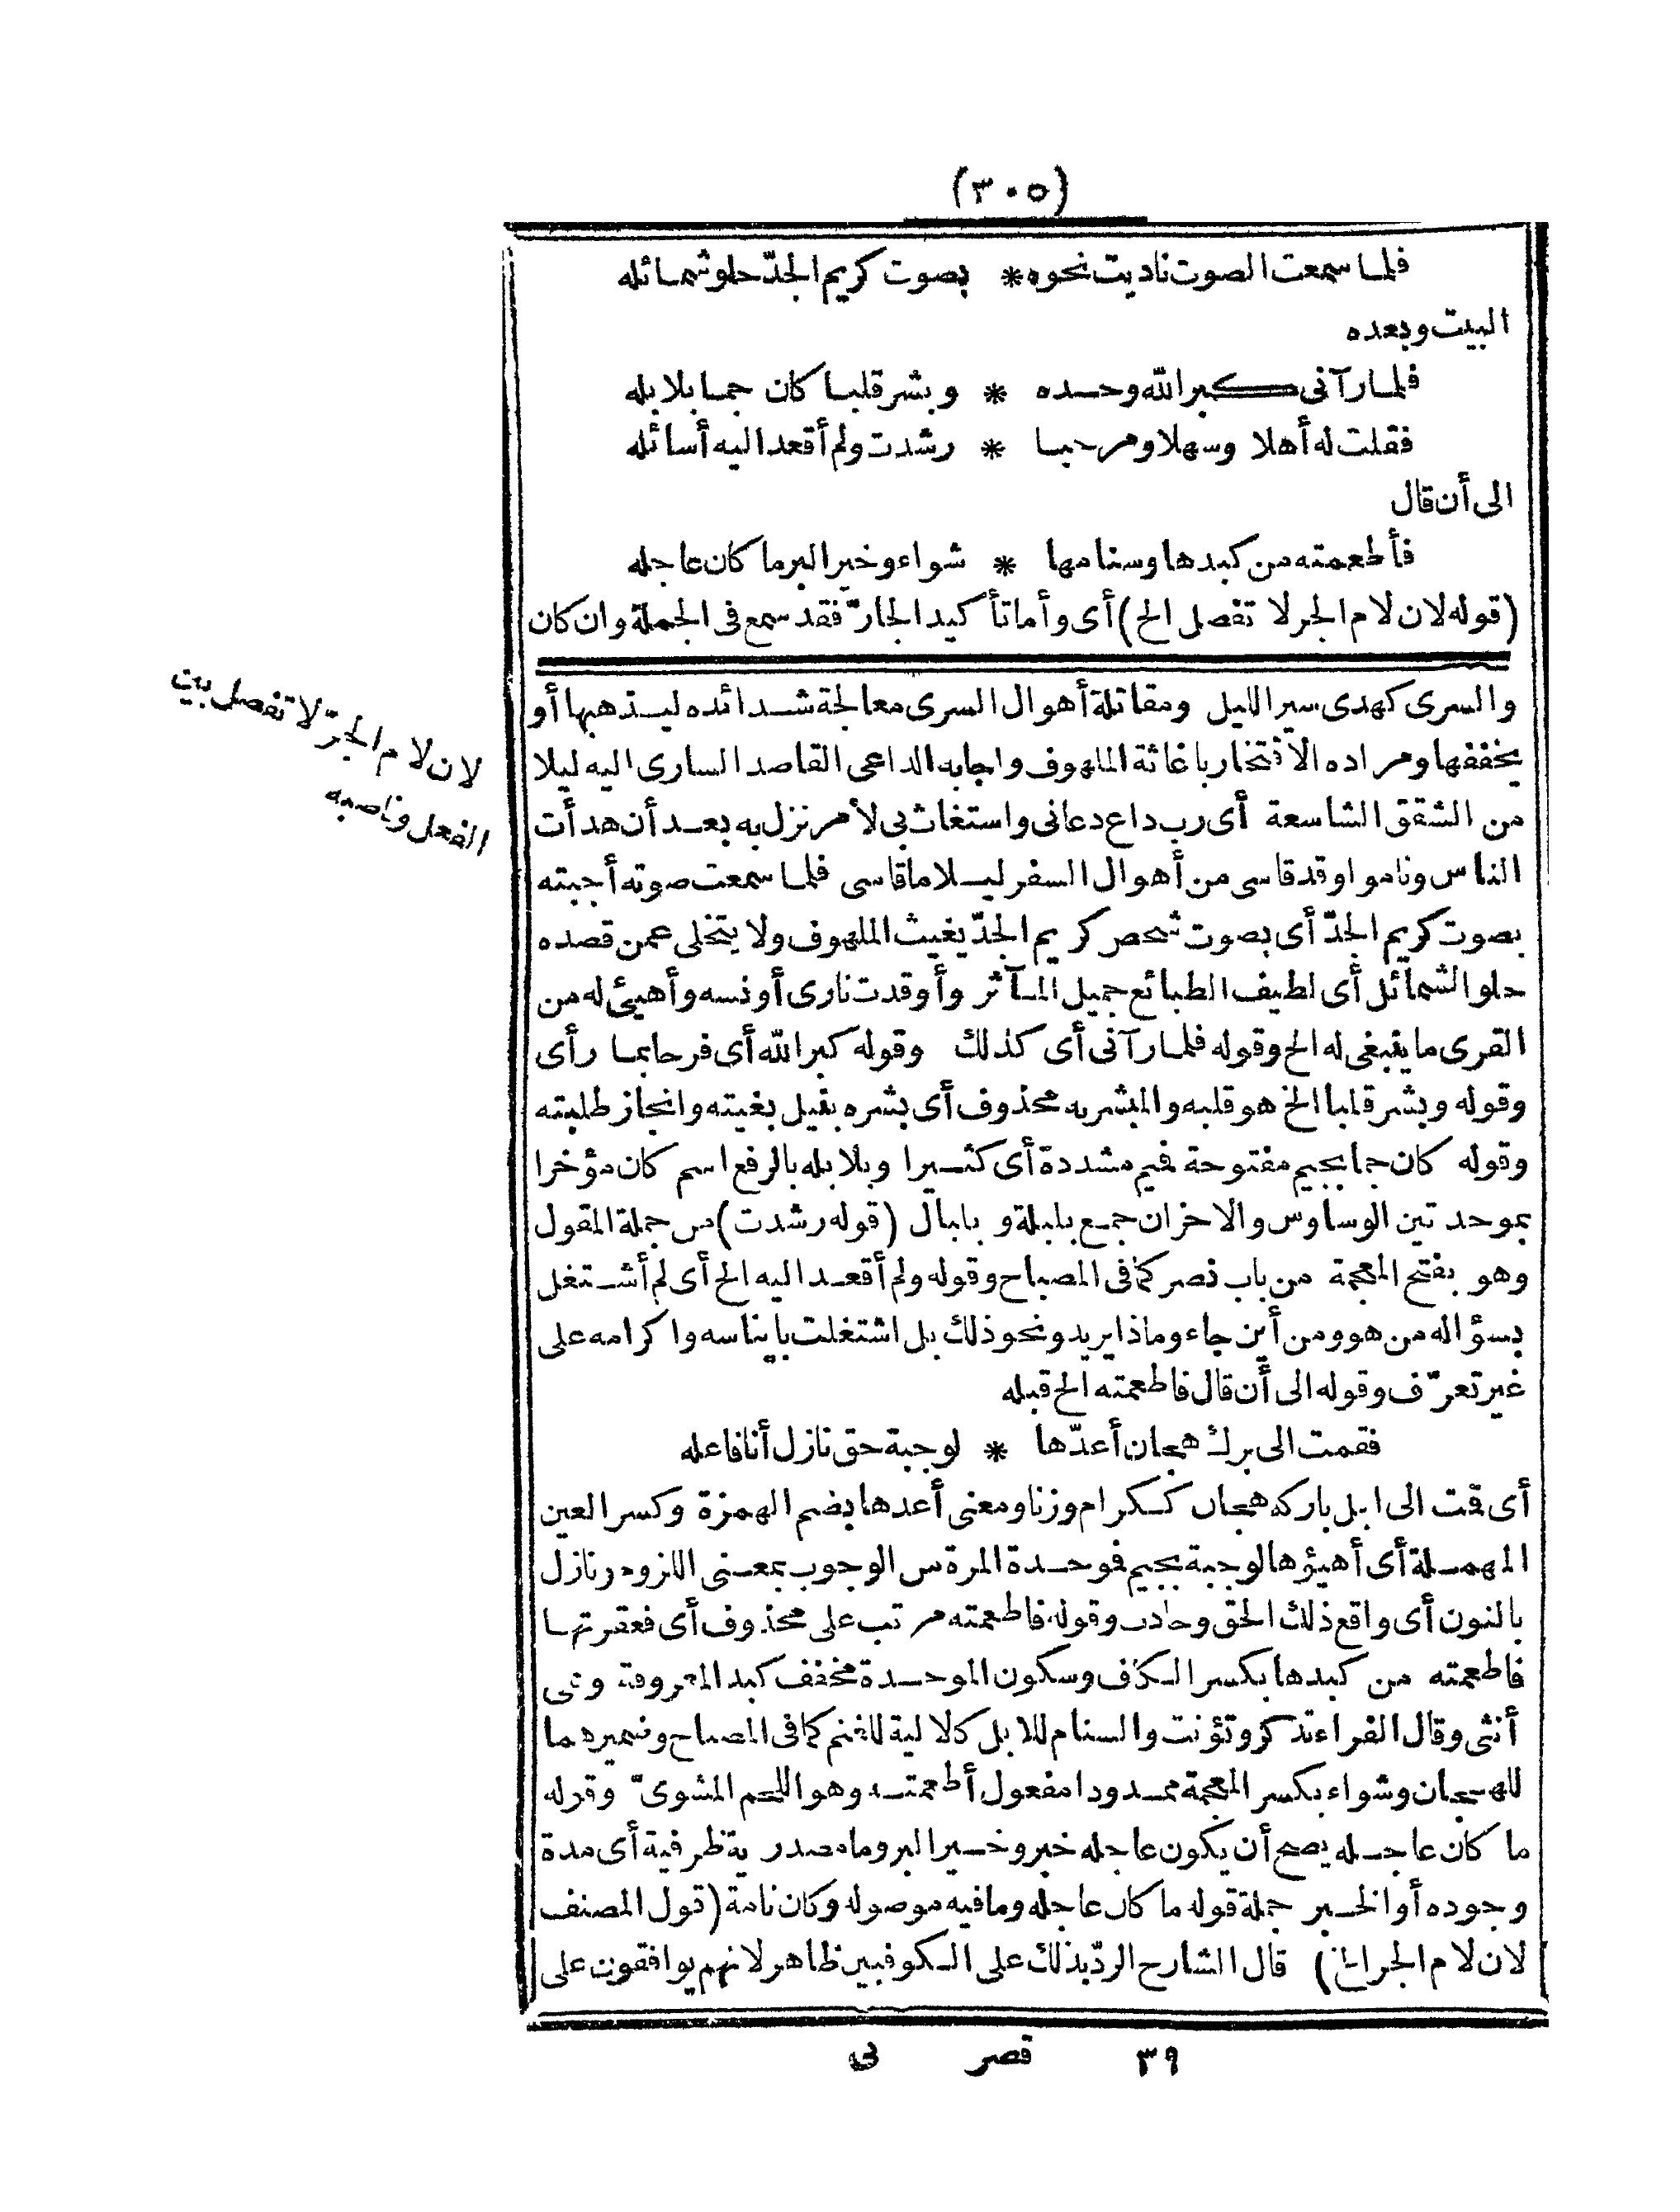 (٣٠٥)
فلما سمعت الصوت ناديت نحوه * بصوت كريم الجدّ حلو شمائله
البيت وبعده
فلما رآنى كبر الله وحده * وبشر قلبا كان جما بلابله
فقلت له أهلا وسهلا ومرحبا * رشدت ولم أقعد اليه أسائله
الى أن قال
فأطعمته من كبدها وسنامها * شواء وخير البر ما كان عاجله
(قوله لان لام الجر لا تفصل الخ) أى وأما تأكيد الجارّ فقد سمع فى الجملة وان كان
والسرى كهدى سير الليل ومقاتلة أهوال السرى معالجة شدائده ليذهبها أو
يخففها ومراده الافتخار باغاثة الملهوف واجابه الداعى القاصد السارى اليه ليلا
من الشقق الشاسعة أى رب داع دعانى واستغاث بى لأمر نزل به بعد أن هدأت
الناس وناموا وقد قاسى من أهوال السفر ليلا ما قاسى فلما سمعت صوته أجبته
بصوت كريم الجدّ أى بصوت شخص كريم الجدّ يغيث الملهوف ولا يتخلى عمن قصده
حلو الشمائل أى لطيف الطبائع جميل المآثر وأوقدت نارى أونسه وأهيئ له من
القرى ما ينبغى له الخ وقوله فلما رآنى أى كذلك وقوله كبر الله أى فرحا بما رأى
وقوله وبشر قلبا الخ هو قلبه والمبشر به محذوف أى بشره بنيل بغيته وانجاز طلبته
وقوله كان جما بجيم مفتوحة فميم مشددة أى كثيرا وبلابله بالرفع اسم كان مؤخرا
بموحدتين الوساوس والاحزان جمع بلبلة وبلبال (قوله رشدت) من جملة المقول
وهو بفتح المعجمة من باب نصر كما فى المصباح وقوله ولم أقعد اليه الخ أى لم أشتغل
بسؤاله من هو ومن أين جاء وماذا يريد ونحو ذلك بل اشتغلت بايناسه واكرامه على
غير تعرّف وقوله الى أن قال فاطعمته الخ قبله
فقمت الى برك هجان أعدّها * لوجبة حق نازل أنا فاعله
أى قمت الى ابل باركه هجان ككرام وزنا ومعنى أعدها بضم الهمزة وكسر العين
المهملة أى أهيؤها لوجبة بجيم فوحدة المرة من الوجوب بمعنى اللزوم ونازل
بالنون أى واقع ذلك الحق وحادث وقوله فاطعمته مرتب على محذوف أى فعقرتها
فاطعمته من كبدها بكسر الكاف وسكون الموحدة مخفف كبد المعروفة وهى
أنثى وقال الفراء تذكر وتؤنث والسنام للابل كالالية للغنم كما فى المصباح وضميرهما
للهجان وشواء بكسر المعجمة ممدودا مفعول أطعمته وهو اللحم المشوىّ وقوله
ما كان عاجله يصح أن يكون عاجله خبر وخير البر وما مصدرية ظرفية أى مدة
وجوده أو الخبر جملة قوله ما كان عاجله وما فيه موصوله وكان تامة (قول المصنف
لان لام الجر الخ) قال الشارح الردّ بذلك على الكوفيين ظاهر لانهم يوافقون على
لان لام الجرّ لا تفصل بين
الفعل وناصبه
٣٩ قصر نى